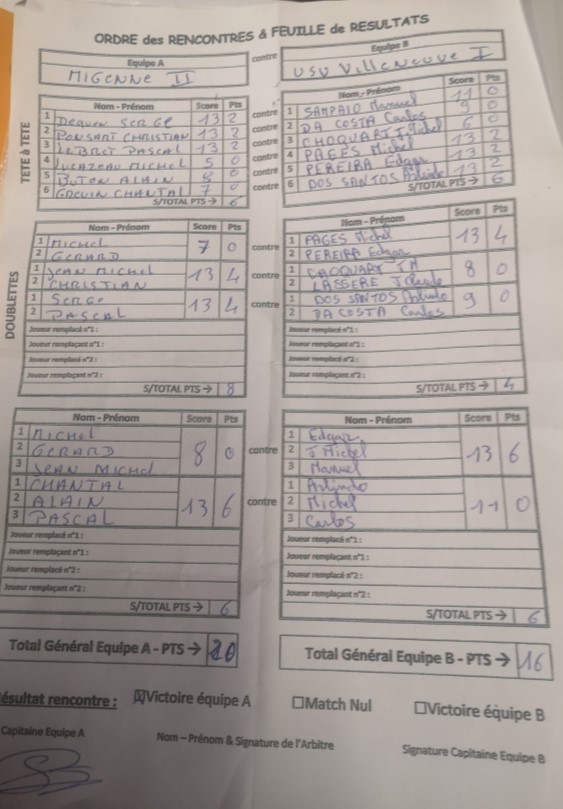 ORDRE des RENCONTRES & FEUILLE de RESULTATS
Equipe A contre Equipe B
MIGENNE II USV Villeneuve I
TETE à TETE
Nom - Prénom Score Pts contre Nom - Prénom Score Pts
1 SERGE 13 2 contre 1 SAMPAIO Manuel 11 0
2 PONSART CHRISTIAN 13 2 contre 2 DA COSTA Carlos 9 0
3 LEBRET PASCAL 13 2 contre 3 CHOQUART J Michel 6 0
4 MICHEL 5 0 contre 4 PAGES Michel 13 2
5 ALAIN 8 0 contre 5 PEREIRA Edgar 13 2
6 CHANTAL 7 0 contre 6 DOS SANTOS Arlindo 13 2
S/TOTAL PTS → 6 S/TOTAL PTS → 6
DOUBLETTES
Nom - Prénom Score Pts Nom - Prénom Score Pts
1 MICHEL 7 0 contre 1 PAGES Michel 13 4
2 GERARD 2 PEREIRA Edgar
1 JEAN MICHEL 13 4 contre 1 CHOQUART JM 8 0
2 CHRISTIAN 2 LASSERE J Claude
1 SERGE 13 4 contre 1 DOS SANTOS Arlindo 9 0
2 PASCAL 2 DA COSTA Carlos
Joueur remplacé n°1 : Joueur remplacé n°1 :
Joueur remplaçant n°1 : Joueur remplaçant n°1 :
Joueur remplacé n°2 : Joueur remplacé n°2 :
Joueur remplaçant n°2 : Joueur remplaçant n°2 :
S/TOTAL PTS → 8 S/TOTAL PTS → 4
Nom - Prénom Score Pts Nom - Prénom Score Pts
1 MICHEL 8 0 contre 1 Edgar 13 6
2 GERARD 2 J Michel
3 JEAN MICHEL 3 Manuel
1 CHANTAL 13 6 contre 1 Arlindo 11 0
2 ALAIN 2 Michel
3 PASCAL 3 Carlos
Joueur remplacé n°1 : Joueur remplacé n°1 :
Joueur remplaçant n°1 : Joueur remplaçant n°1 :
Joueur remplacé n°2 : Joueur remplacé n°2 :
Joueur remplaçant n°2 : Joueur remplaçant n°2 :
S/TOTAL PTS → 6 S/TOTAL PTS → 6
Total Général Equipe A - PTS → 20 Total Général Equipe B - PTS → 16
ésultat rencontre : ☒Victoire équipe A ☐Match Nul ☐Victoire équipe B
Capitaine Equipe A Nom – Prénom & Signature de l'Arbitre Signature Capitaine Equipe B